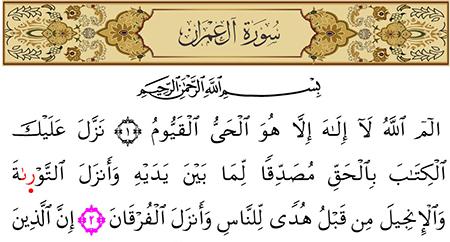 سُورَةُ آلِ عِمْرَانَ
بِسْمِ ٱللَّهِ ٱلرَّحْمَٰنِ ٱلرَّحِيمِ
الٓمٓ ٱللَّهُ لَآ إِلَٰهَ إِلَّا هُوَ ٱلْحَىُّ ٱلْقَيُّومُ ١ نَزَّلَ عَلَيْكَ
ٱلْكِتَٰبَ بِٱلْحَقِّ مُصَدِّقًا لِّمَا بَيْنَ يَدَيْهِ وَأَنزَلَ ٱلتَّوْرَىٰةَ
وَٱلْإِنجِيلَ مِن قَبْلُ هُدًى لِّلنَّاسِ وَأَنزَلَ ٱلْفُرْقَانَ ٢ إِنَّ ٱلَّذِينَ